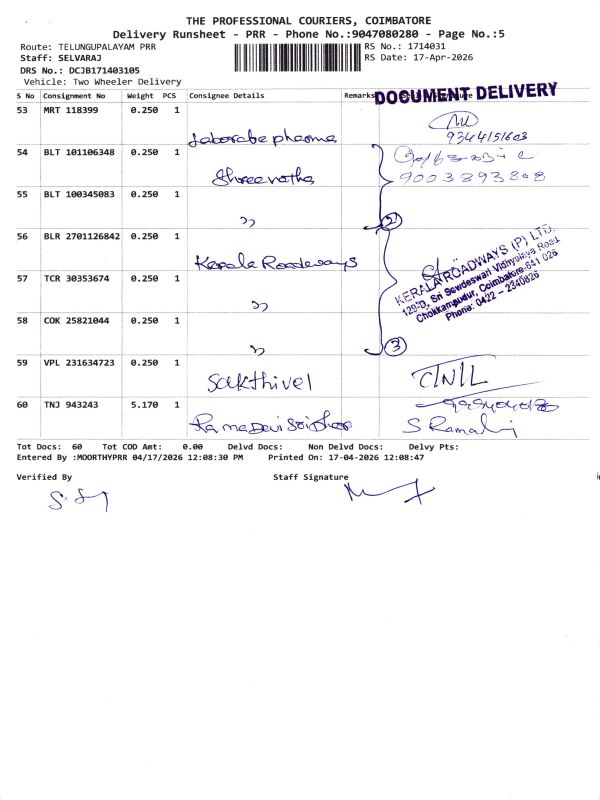 THE PROFESSIONAL COURIERS, COIMBATORE
Delivery Runsheet - PRR - Phone No.:9047080280 - Page No.:5
Route: TELUNGUPALAYAM PRR
RS No.: 1714031
Staff: SELVARAJ
RS Date: 17-Apr-2026
DRS No.: DCJB171403105
Vehicle: Two Wheeler Delivery
DOCUMENT DELIVERY
S No Consignment No Weight PCS Consignee Details Remarks
53 MRT 118399 0.250 1
9344151603
54 BLT 101106348 0.250 1 Shreenatha
9003893808
55 BLT 100345083 0.250 1 "
2
56 BLR 2701126842 0.250 1 Kerala Roadways
KERALA ROADWAYS (P) LTD.
129-B, Sri Sowdeswari Vidhyalaya Road
Chokkampudur, Coimbatore-641 026
Phone: 0422 - 2340826
57 TCR 30353674 0.250 1 "
58 COK 25821044 0.250 1 "
3
59 VPL 231634723 0.250 1 Sakthivel
60 TNJ 943243 5.170 1 Ramadevi Sridhar
Tot Docs: 60 Tot COD Amt: 0.00 Delvd Docs: Non Delvd Docs: Delvy Pts:
Entered By :MOORTHYPRR 04/17/2026 12:08:30 PM Printed On: 17-04-2026 12:08:47
Verified By Staff Signature